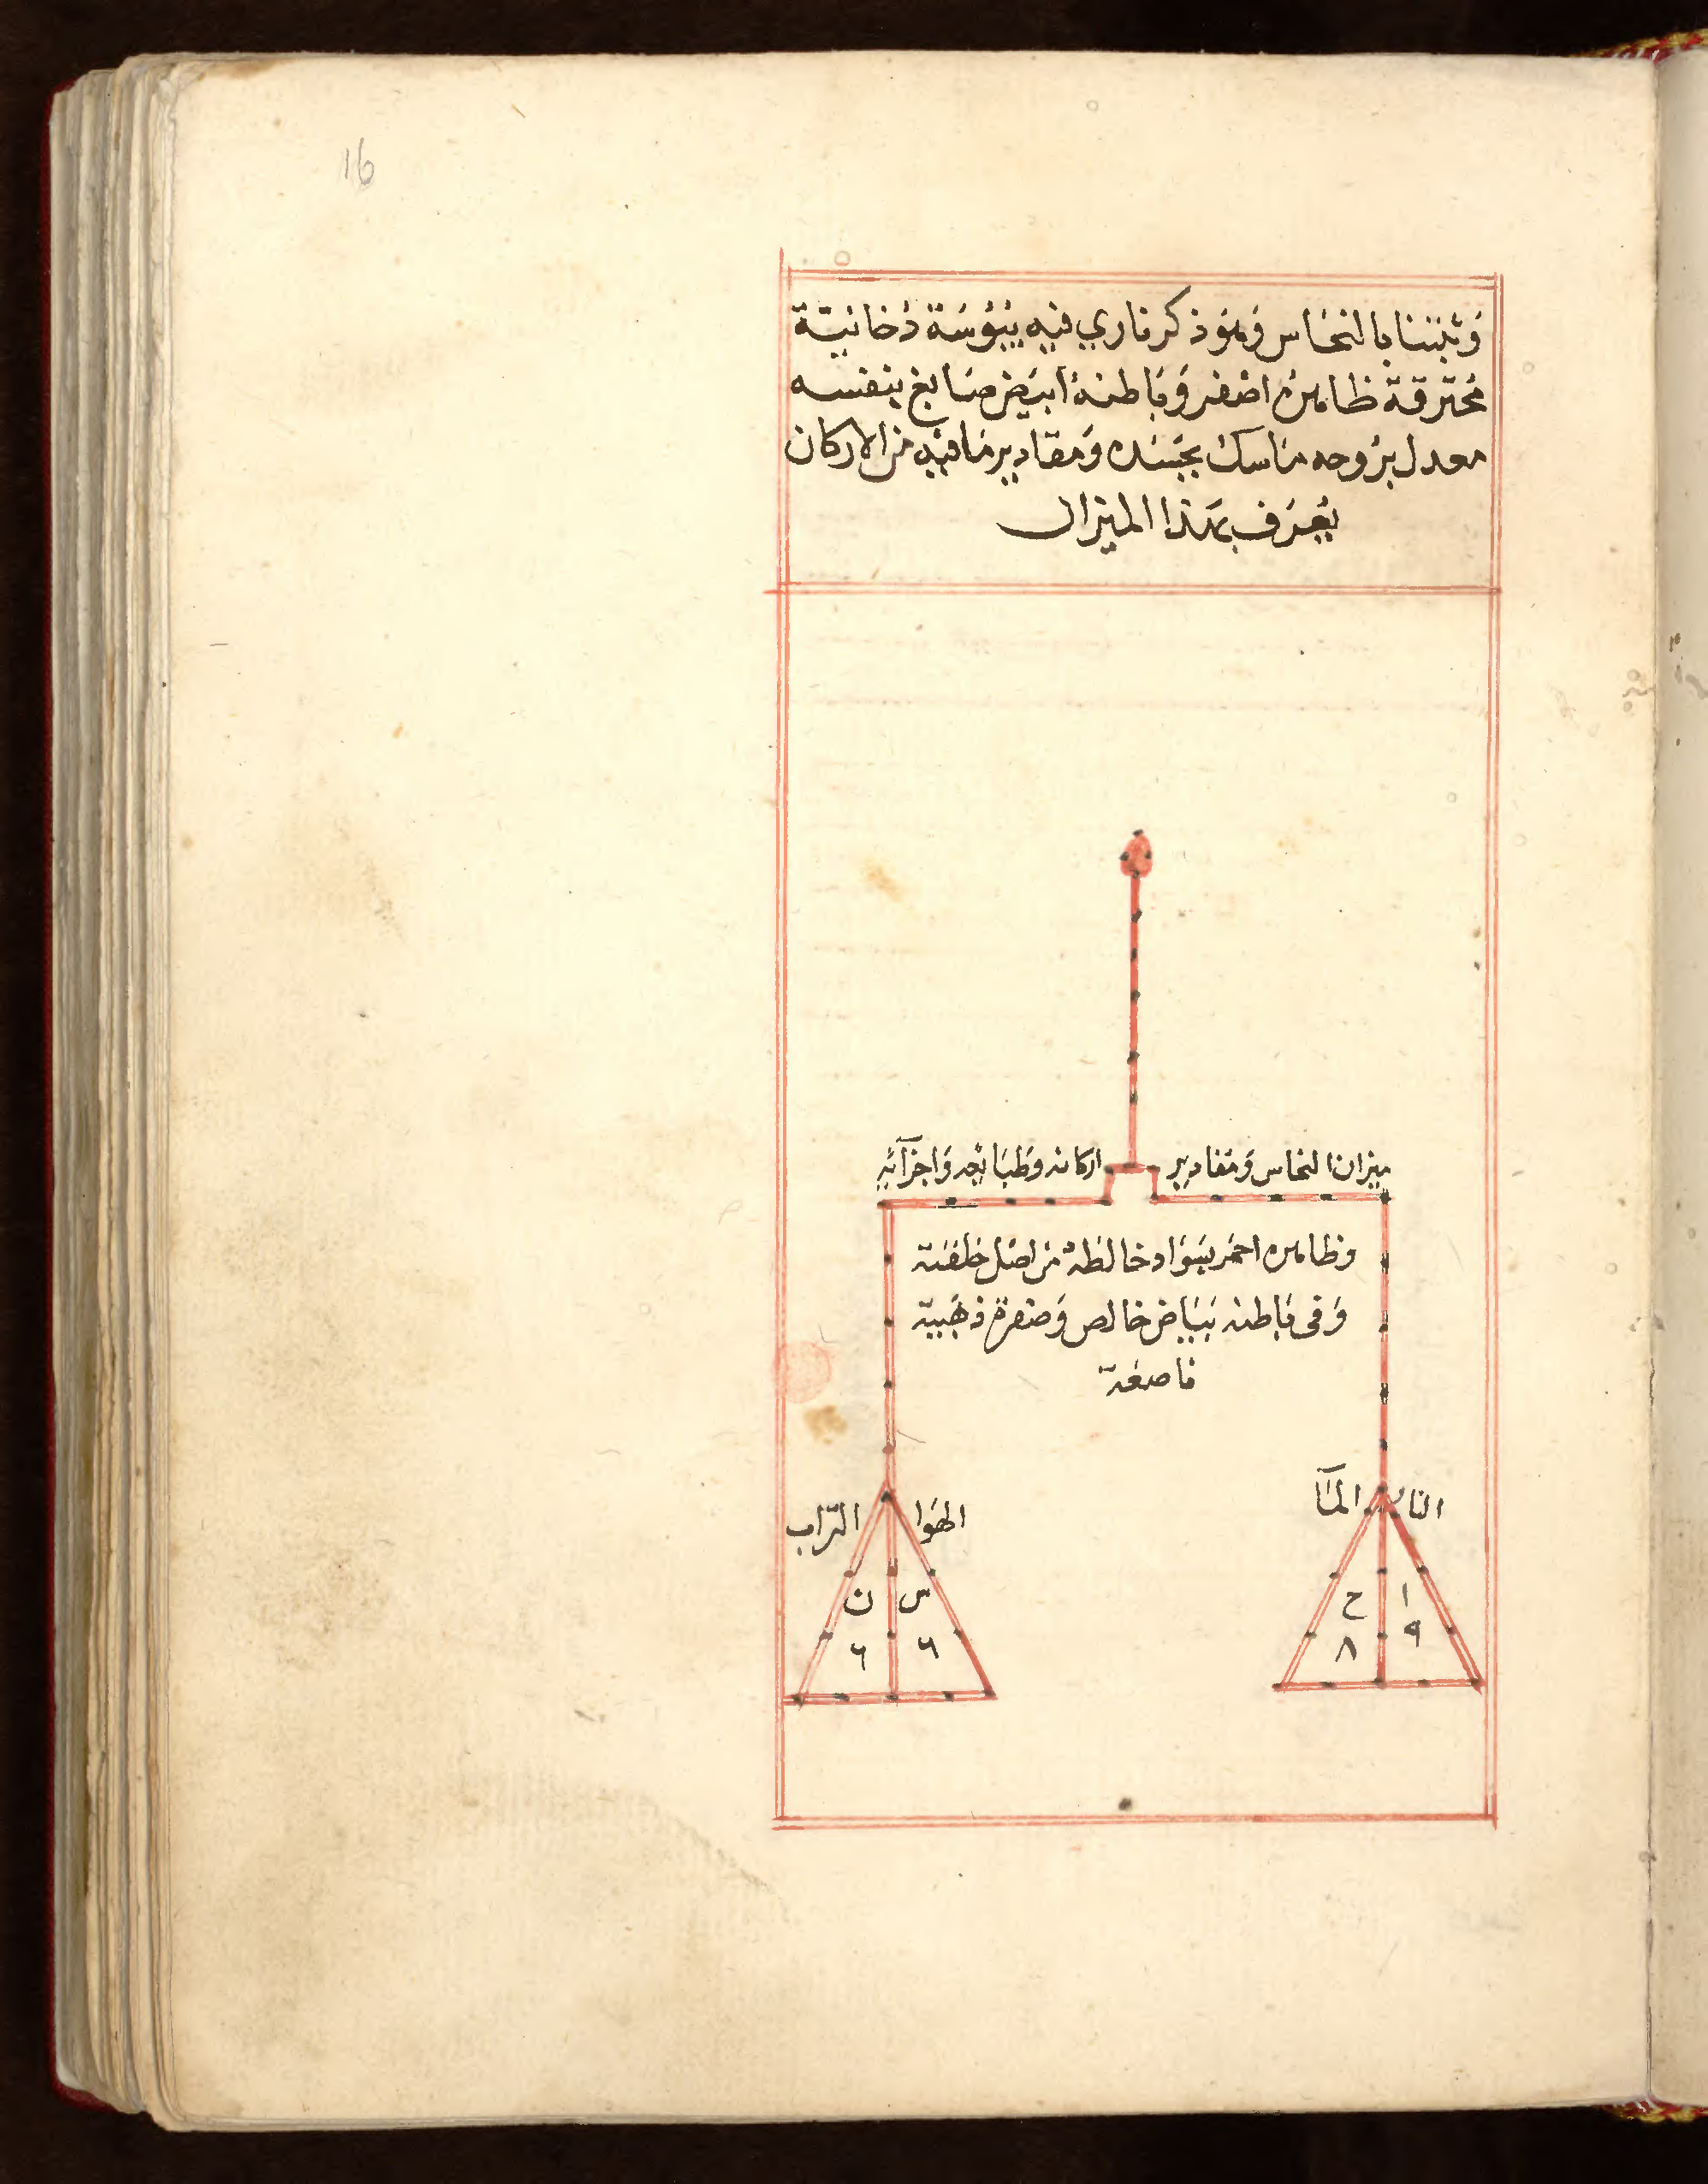 16
وَثنينا بالنحاس وَهوَ ذكر ناري فيه يبُوسَة دُخانيّة
مُحترقة ظاهرهُ اصْفر وَبَاطنهُ أبيَض صَابغ بنفسه
معدل برُوحه مَاسك بجَسَده وَمقاديرمَافيْهِ من الاركان
يُعرَف بهَذا الميزان
ميزان النحاس وَمقادير
اركانه وَطبَائعِه وَاجزآئِهِ
وظاهره احمَر بسَوَاد خالطهُ من اصْل خلقَته
وَفى بَاطنه بَيَاض خالص وَصفرة ذهَبية
ناصعَة
النار
المَآ
الهَوا
التّراب
ا
ح
س
ن
٩
٨
٦
٦